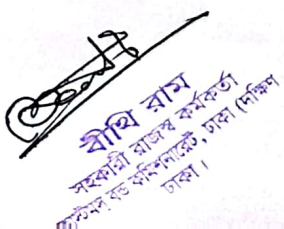 বীথি রাম
সহকারী রাজস্ব কর্মকর্তা
কাস্টমস বন্ড কমিশনারেট, ঢাকা (দক্ষিণ
ঢাকা।